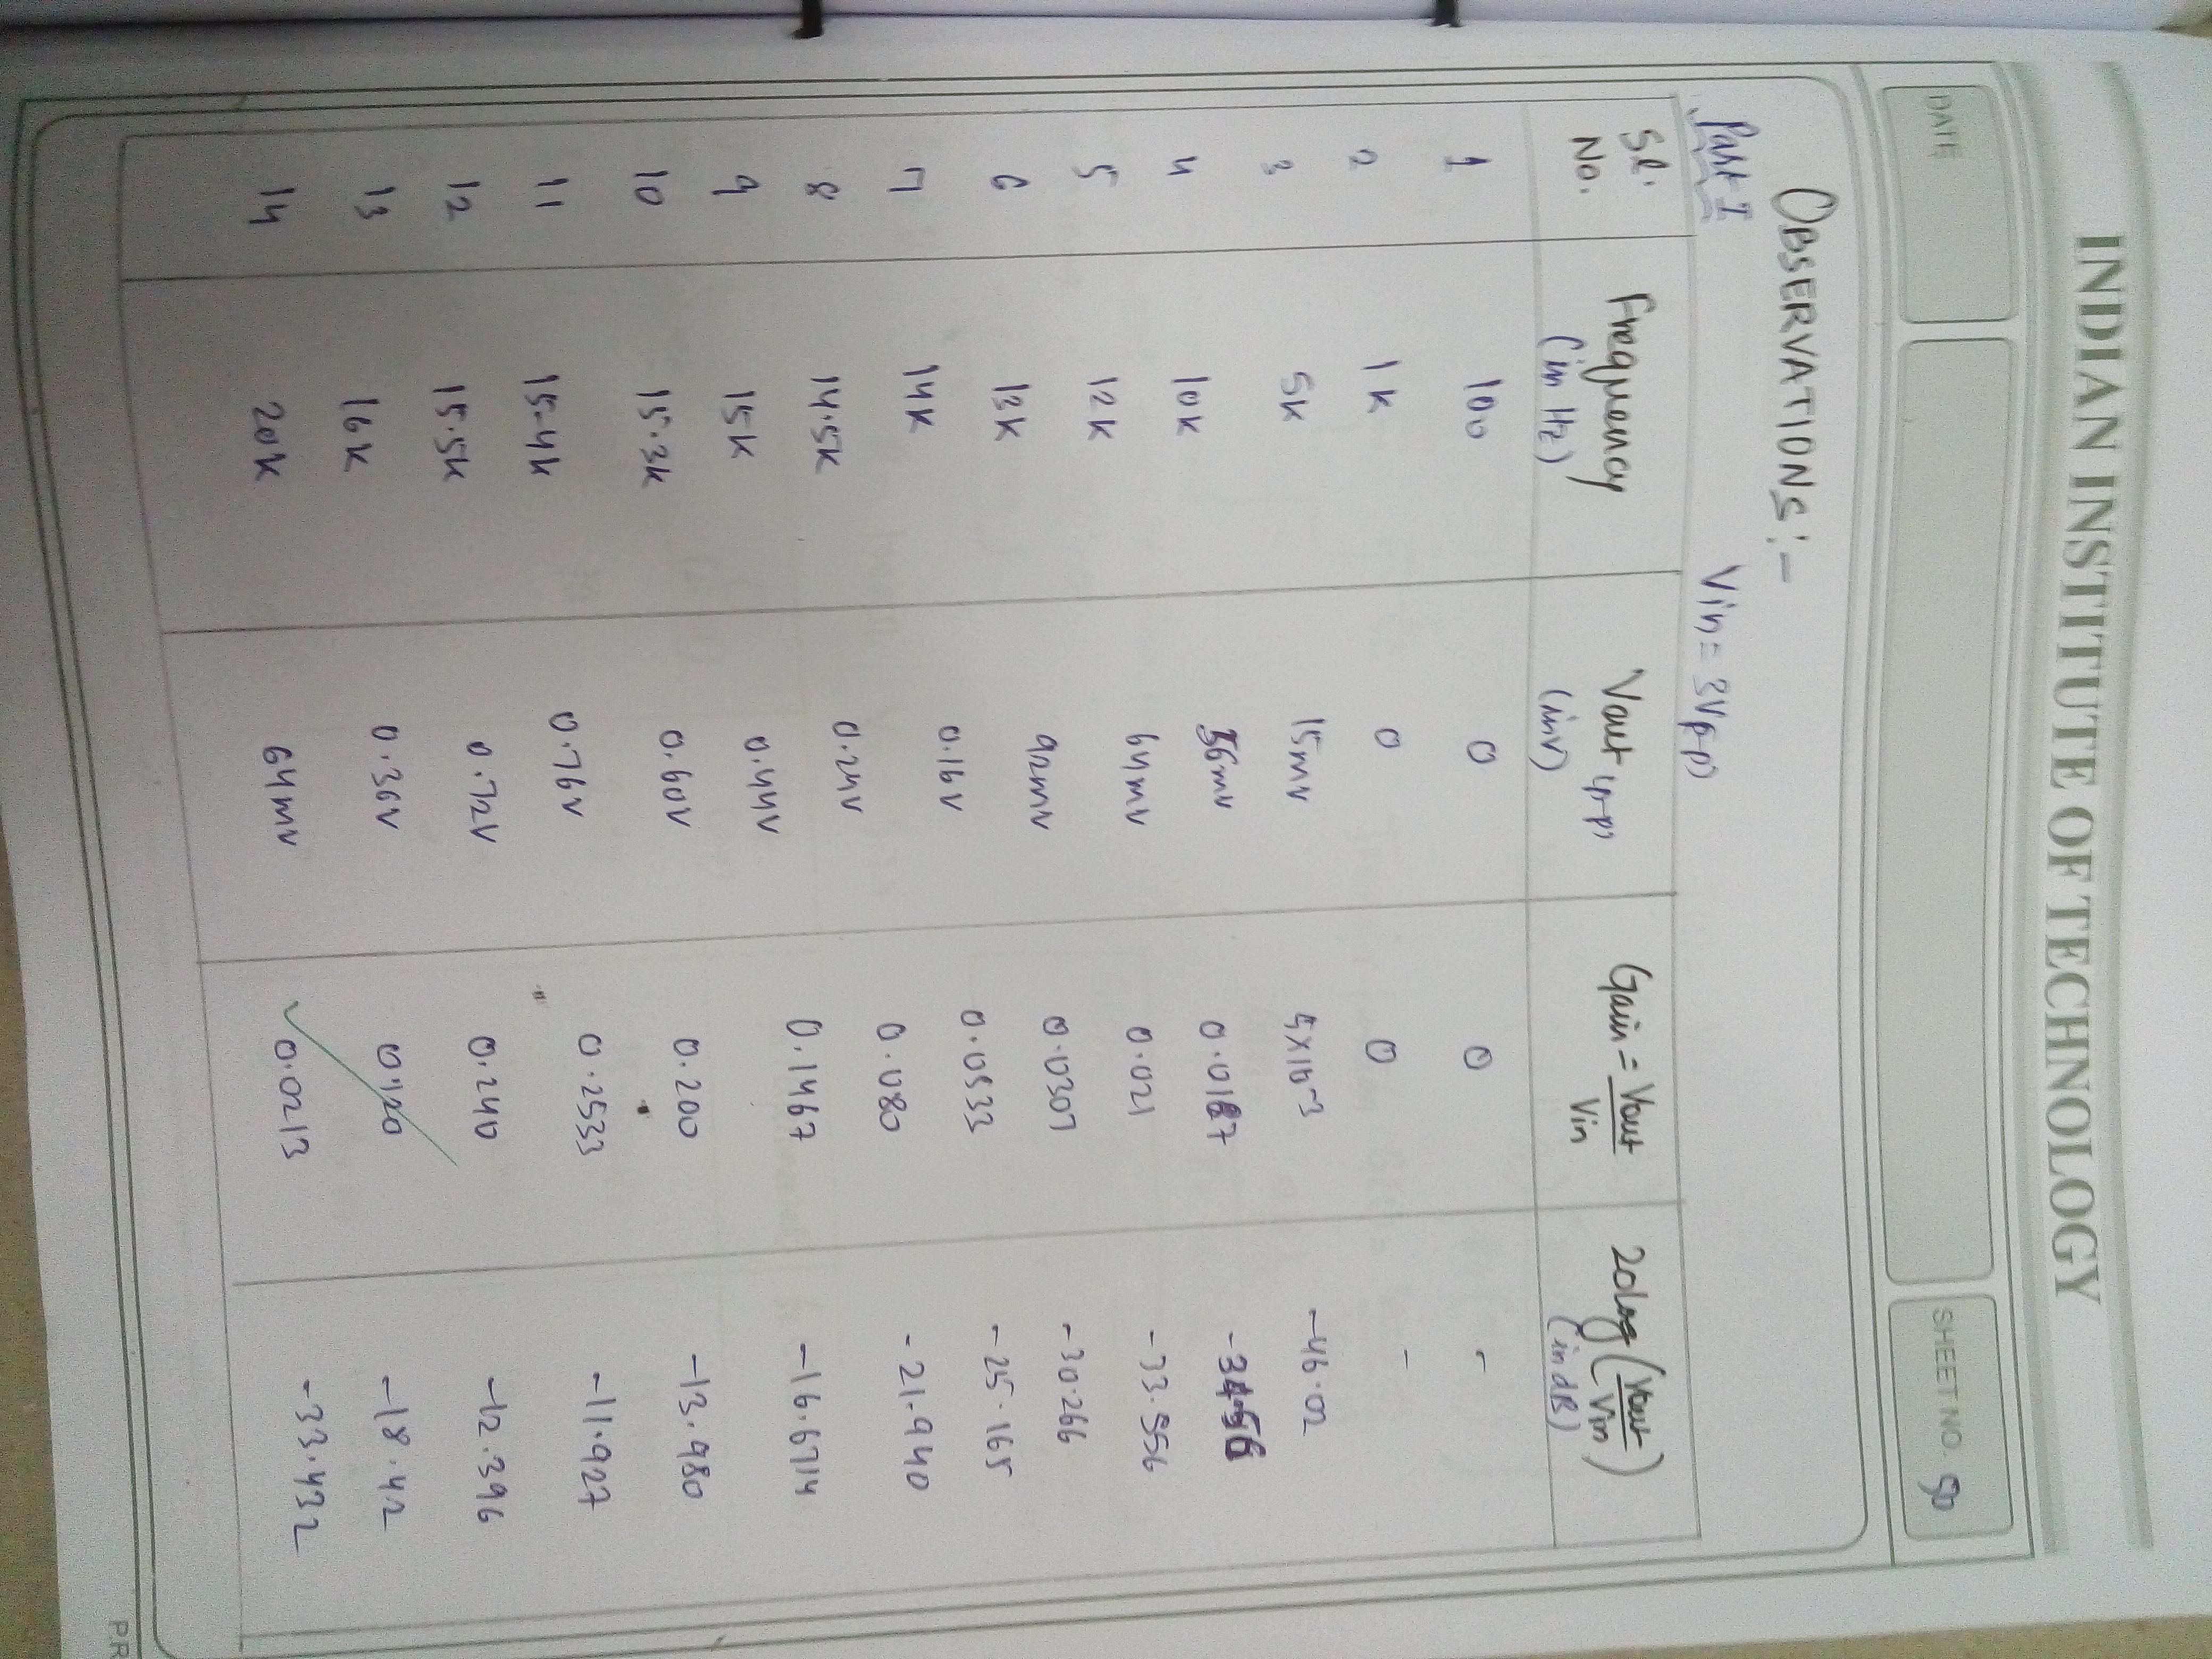 INDIAN INSTITUTE OF TECHNOLOGY
DATE
SHEET NO. 50
OBSERVATIONS:-
Part I Vin = 3V(p-p)
Sl. No. Frequency (in Hz) Vout (p-p) (in V) Gain = Vout/Vin 20log (Vout/Vin) (in dB)
1 100 0 0 -
2 1K 0 0 -
3 5K 15mV 5×10-3 -46.02
4 10K 56mV 0.0187 -34.56
5 12K 64mV 0.021 -33.556
6 13K 92mV 0.0307 -30.266
7 14K 0.16V 0.0533 -25.165
8 14.5K 0.24V 0.080 -21.940
9 15K 0.44V 0.1467 -16.6714
10 15.3K 0.60V 0.200 -13.980
11 15.4K 0.76V 0.2533 -11.927
12 15.5K 0.72V 0.240 -12.396
13 16K 0.36V 0.120 -18.42
14 20K 64mV 0.0213 -33.432
P.R